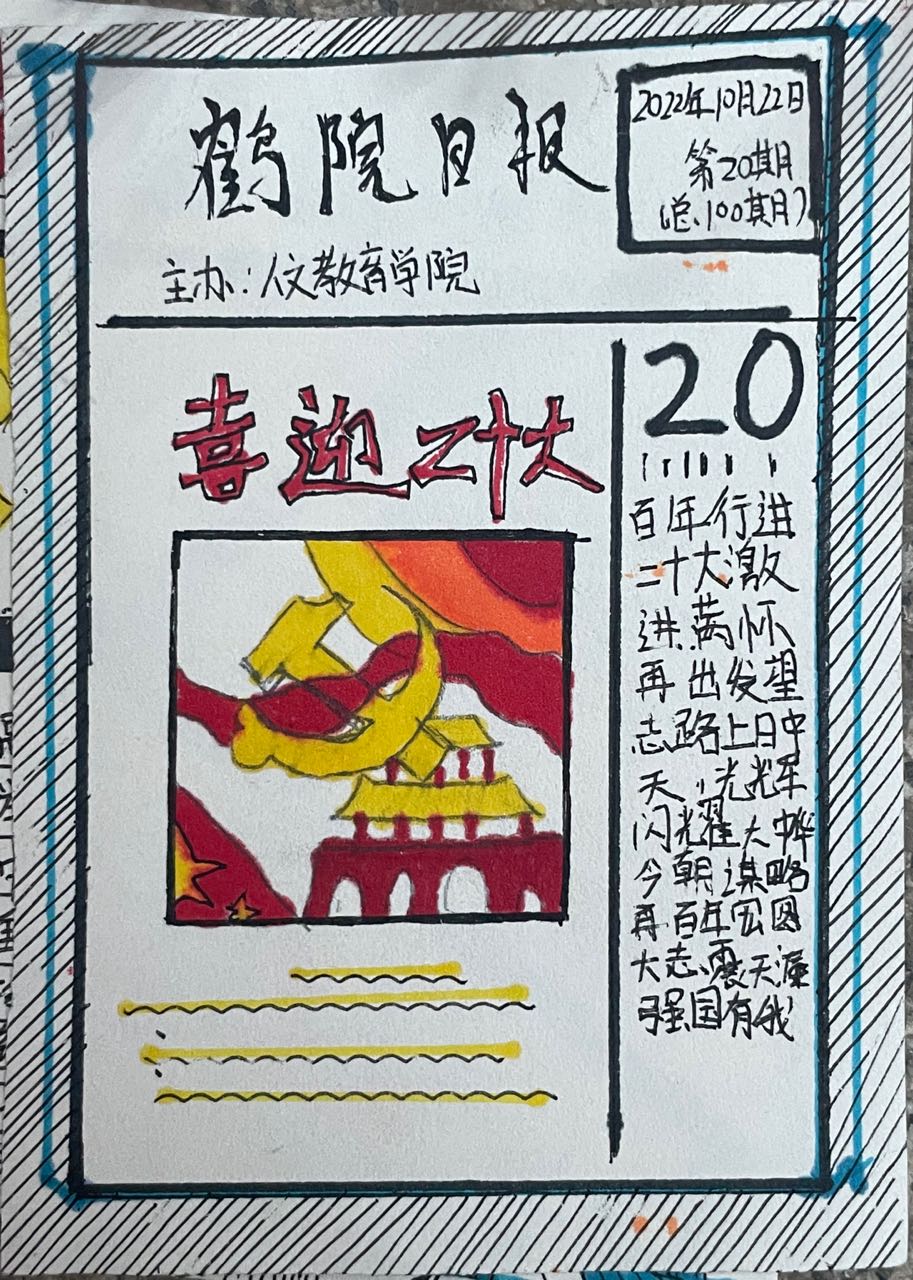 鹤院日报
2022年10月22日
第20期
(总100期)
主办:人文教育学院
喜迎二十大
20
百年行进
二十大激
进满怀
再出发望
志路上日中
天 光辉
闪光耀大中华
今朝谋略
再百年宏图
大志震天涯
强国有我